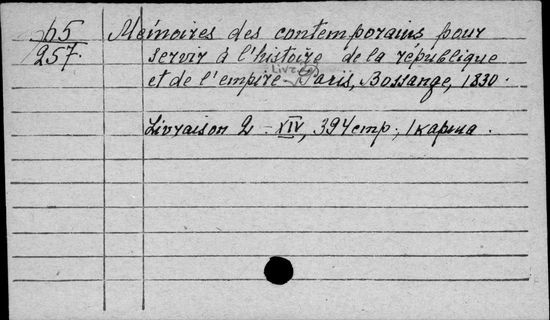 65
257.
Mémoires des contemporains pour
servir à l'histoire de la république
et de l'empire. Paris, Bossange, 1830.
Livraison 2 – XIV, 394 стр., 1 карта.